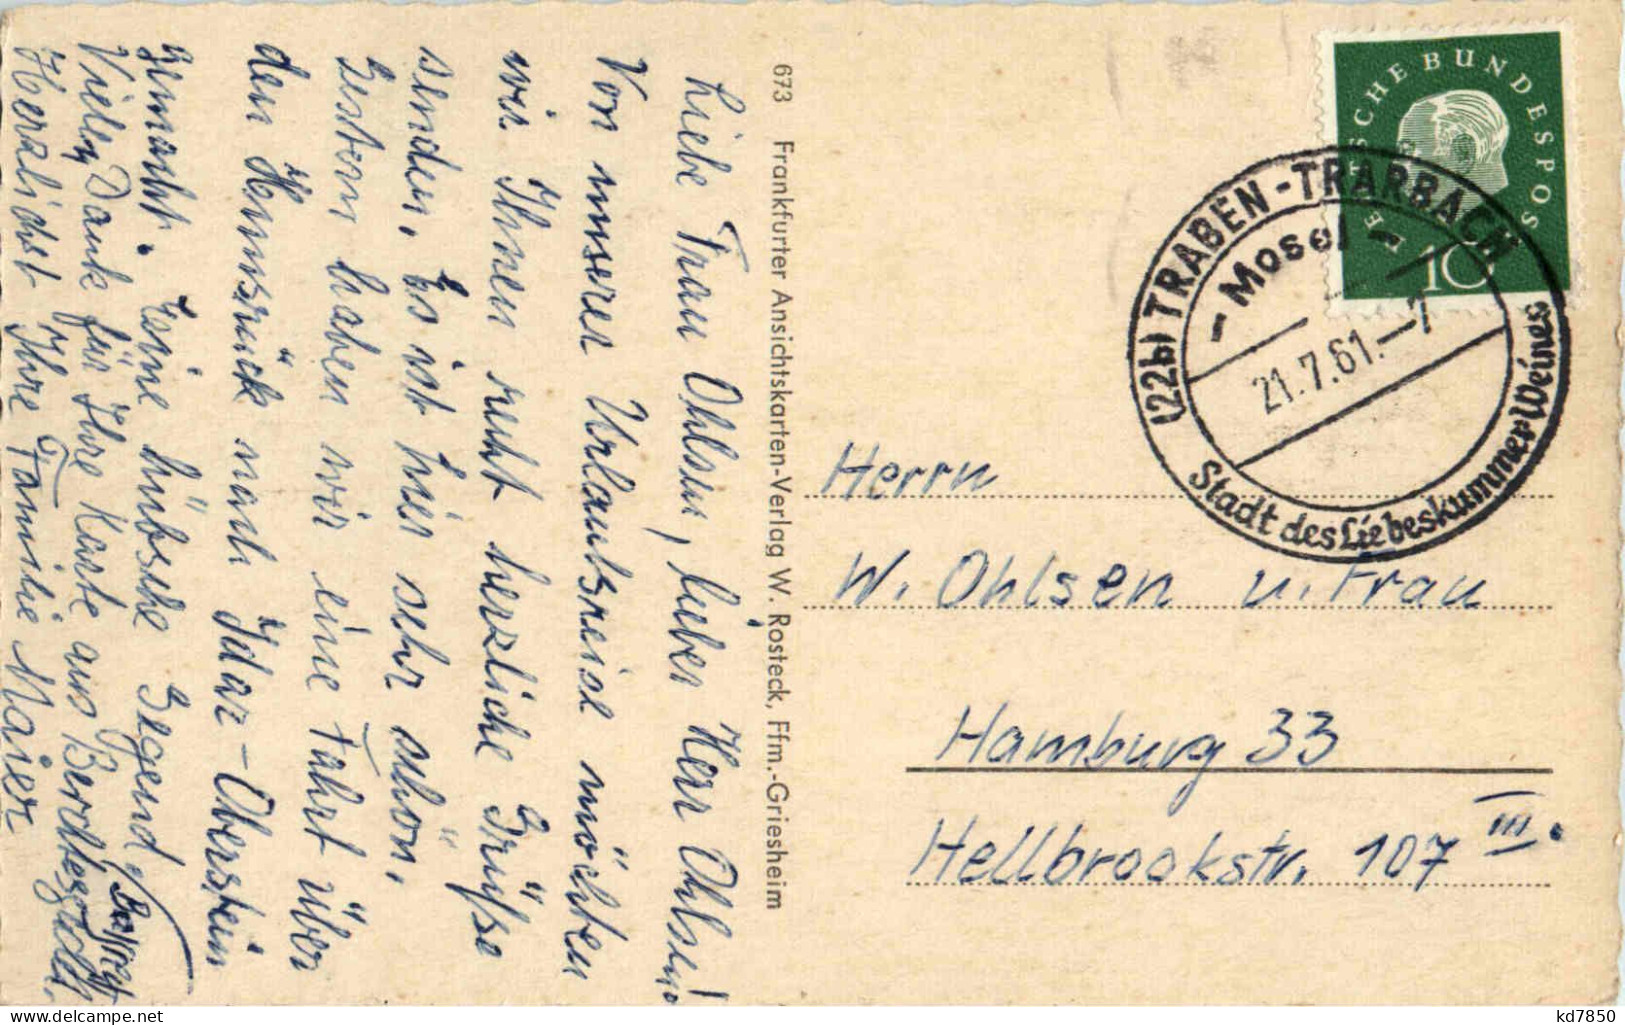 Liebe Frau Ohlsen, lieber Herr Ohlsen!
Von unserer Urlaubsreise möchten
wir Ihnen recht herzliche Grüße
senden. Es ist hier sehr schön.
Gestern haben wir eine Fahrt über
den Hunsrück nach Idar-Oberstein
gemacht. Eine hübsche Gegend.
Vielen Dank für Ihre Karte aus Berchtesgaden.
Herzlichst Ihre Familie Maier
673 Frankfurter Ansichtskarten-Verlag W. Rosteck, Ffm.-Griesheim
DEUTSCHE BUNDESPOST
10
(22b) TRABEN-TRARBACH
- Mosel -
21.7.61.-7
Stadt des Liebeskummer Weines
Herrn
W. Ohlsen u. Frau
Hamburg 33
Hellbrookstr. 107 III.
kd7850